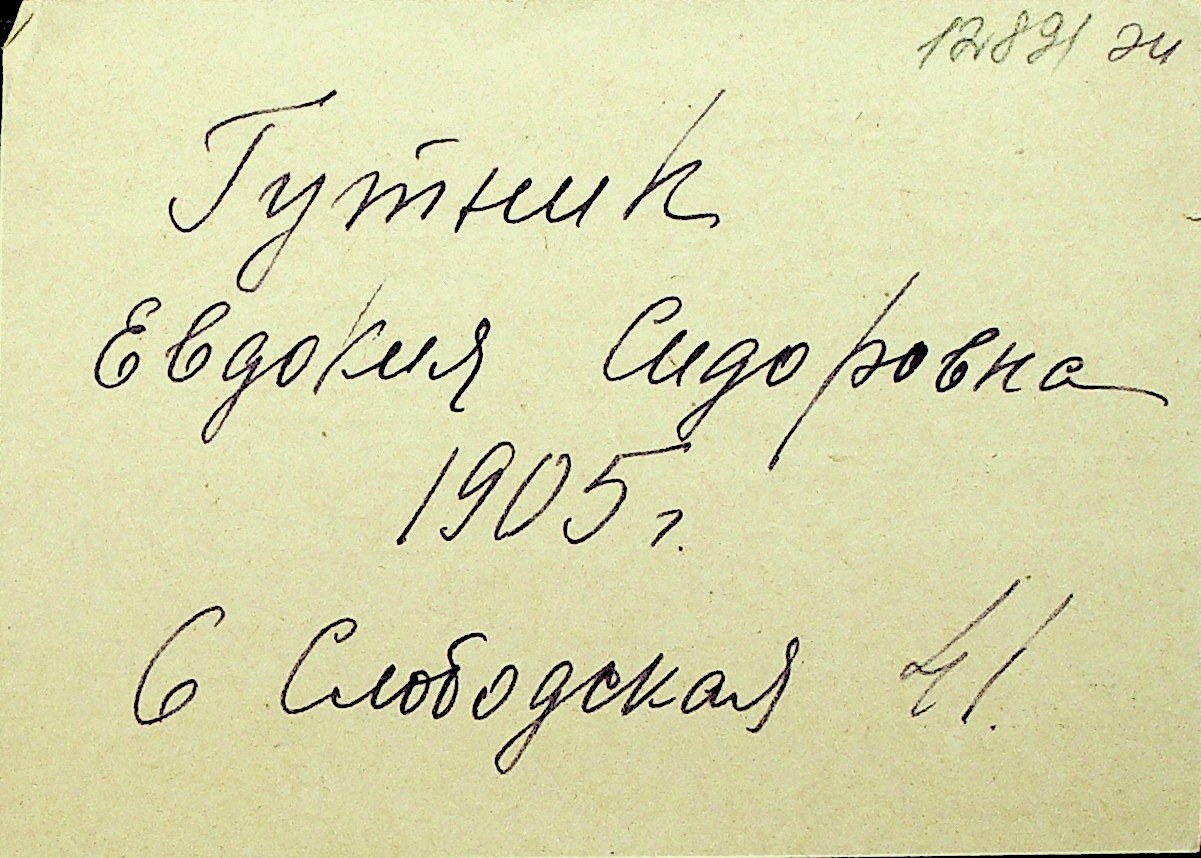 12891 эи
Гутник
Евдокия Сидоровна
1905 г.
6 Слободская 41.